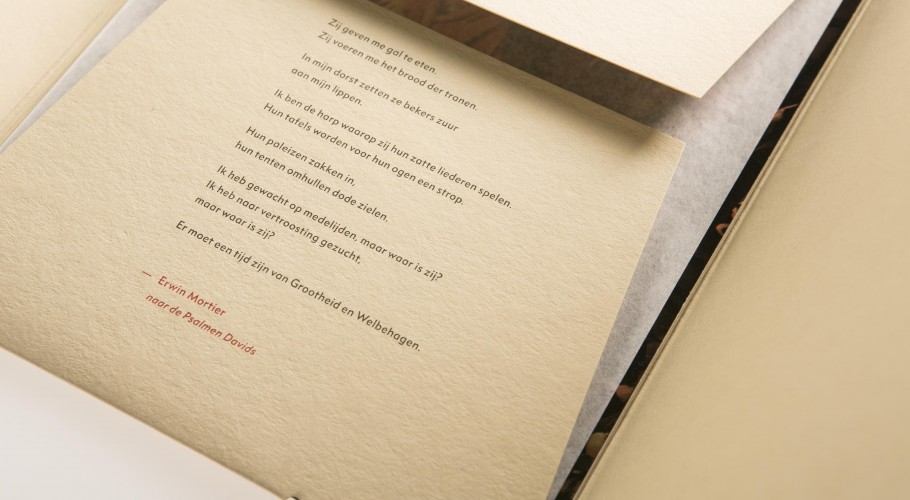 Zij geven me gal te eten.
Zij voeren me het brood der tranen.
In mijn dorst zetten ze bekers zuur
aan mijn lippen.
Ik ben de harp waarop zij hun zatte liederen spelen.
Hun tafels worden voor hun ogen een strop.
Hun paleizen zakken in,
hun tenten omhullen dode zielen.
Ik heb gewacht op medelijden, maar waar is zij?
Ik heb naar vertroosting gezucht,
maar waar is zij?
Er moet een tijd zijn van Grootheid en Welbehagen.
— Erwin Mortier
naar de Psalmen Davids